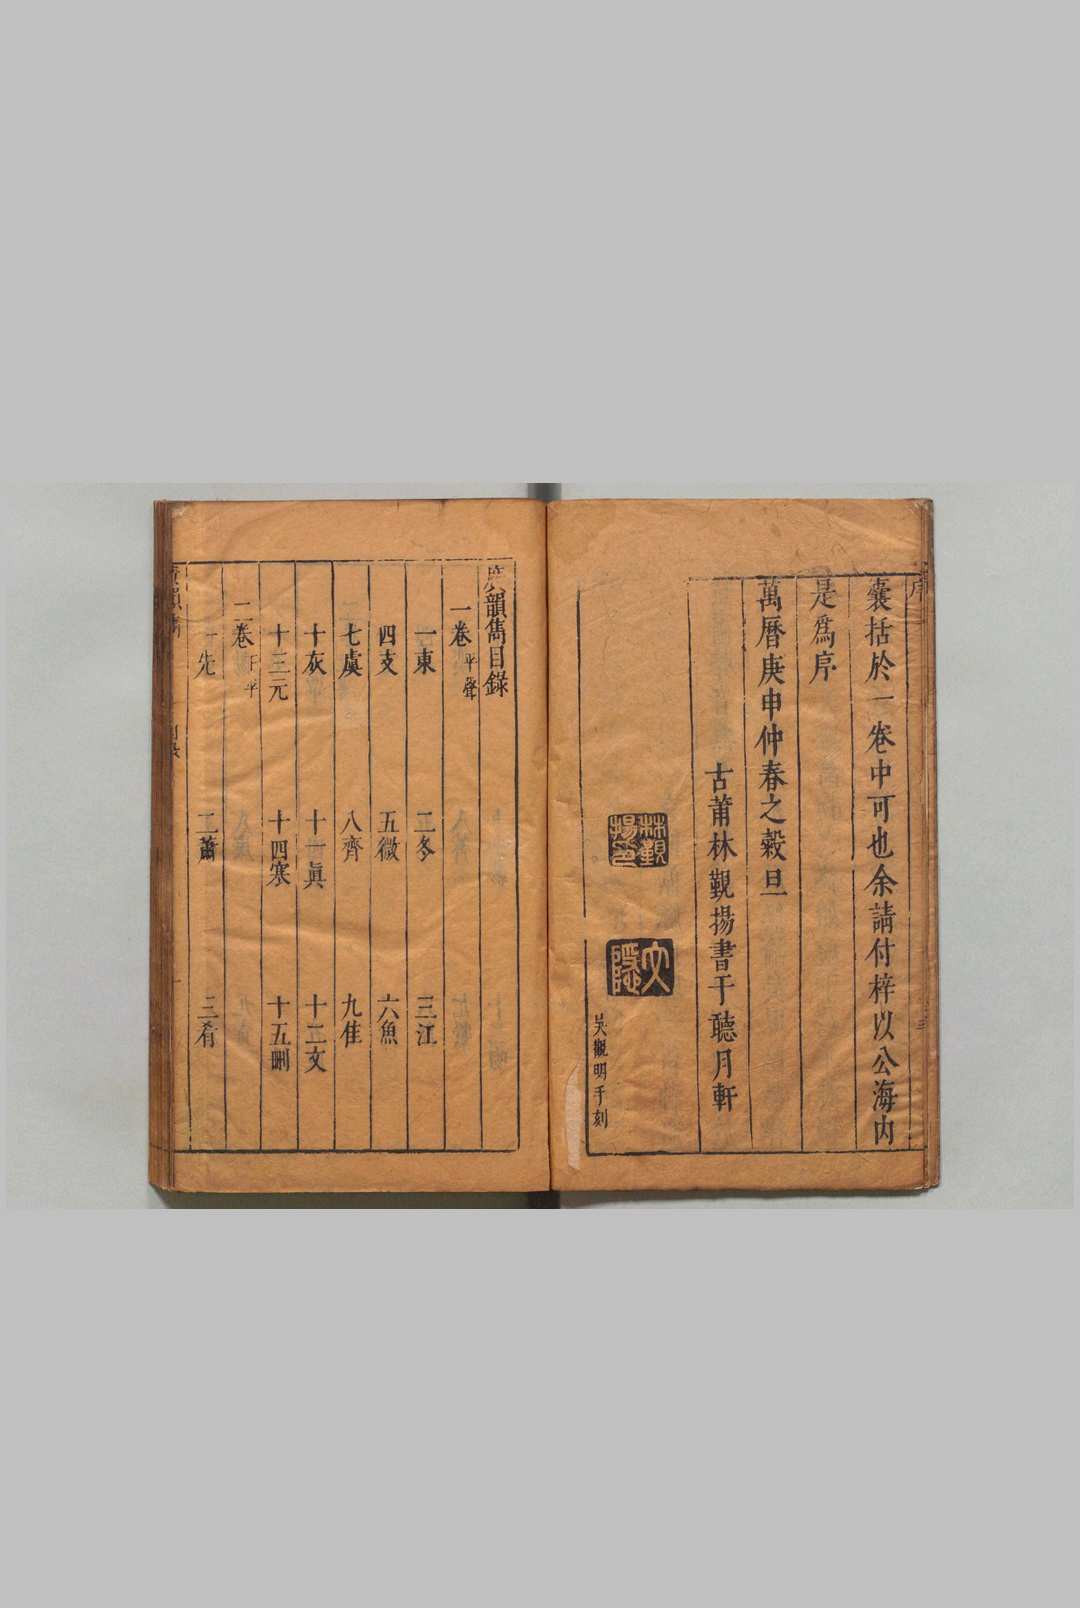 囊括於一卷中可也余請付梓以公海內
是爲序
萬曆庚申仲春之穀旦
古莆林覲揚書于聽月軒
林覲揚印
文隱
吳觀明手刻
廣韻雋目錄
一卷 平聲
一東 二冬 三江
四支 五微 六魚
七虞 八齊 九佳
十灰 十一眞 十二文
十三元 十四寒 十五刪
二卷 下平
一先 二蕭 三肴